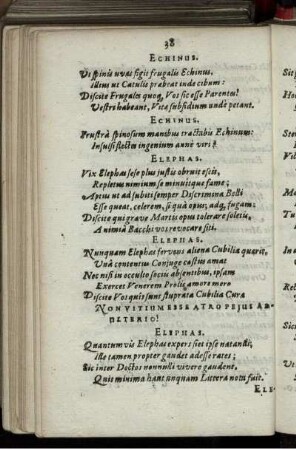 38
ECHINUS.
Ut spinis uvas figit frugalis Echinus,
illius ut Catulis præbeat inde cibum:
Discite Frugales quoq, Vos sic esse Parentes!
Vestri habeant, Vitæ subsidium unde petant.
ECHINUS.
Frustrà spinosum manibus tractabis Echinum:
Insulsi stoltis ingenium anne viri?
ELEPHAS.
Vix Elephas sese plus justis obruit escis,
Repletus nimium se minuitque fame;
Aptius ut ad subiti semper Discrimina Belli
Esse queat, celerem, si quâ opus, adq, fugam;
Discite qui grave Martis opus tolerare soletis,
A nimiâ Bacchi vos revocare siti.
ELEPHAS.
Nunquam Elephas fervens aliena Cubilia quærit,
Unâ contentus Conjuge castus amat
Nec nisi in occulto sociis absentibus, ipsam
Exercet Venerem Prolis amore merô
Discite Vos quis sunt stuprata Cubilia Curæ
NON VITIUM ESSE ATROPEJUS AD-
ULTERIO!
ELEPHAS.
Quantumvis Elephas expers siet ipse natandi,
ille tamen propter gaudet adesse rates;
Sic inter Doctos nonnulli vivere gaudent,
Queis minima haut unquam Littera nota fuit.
ELE-